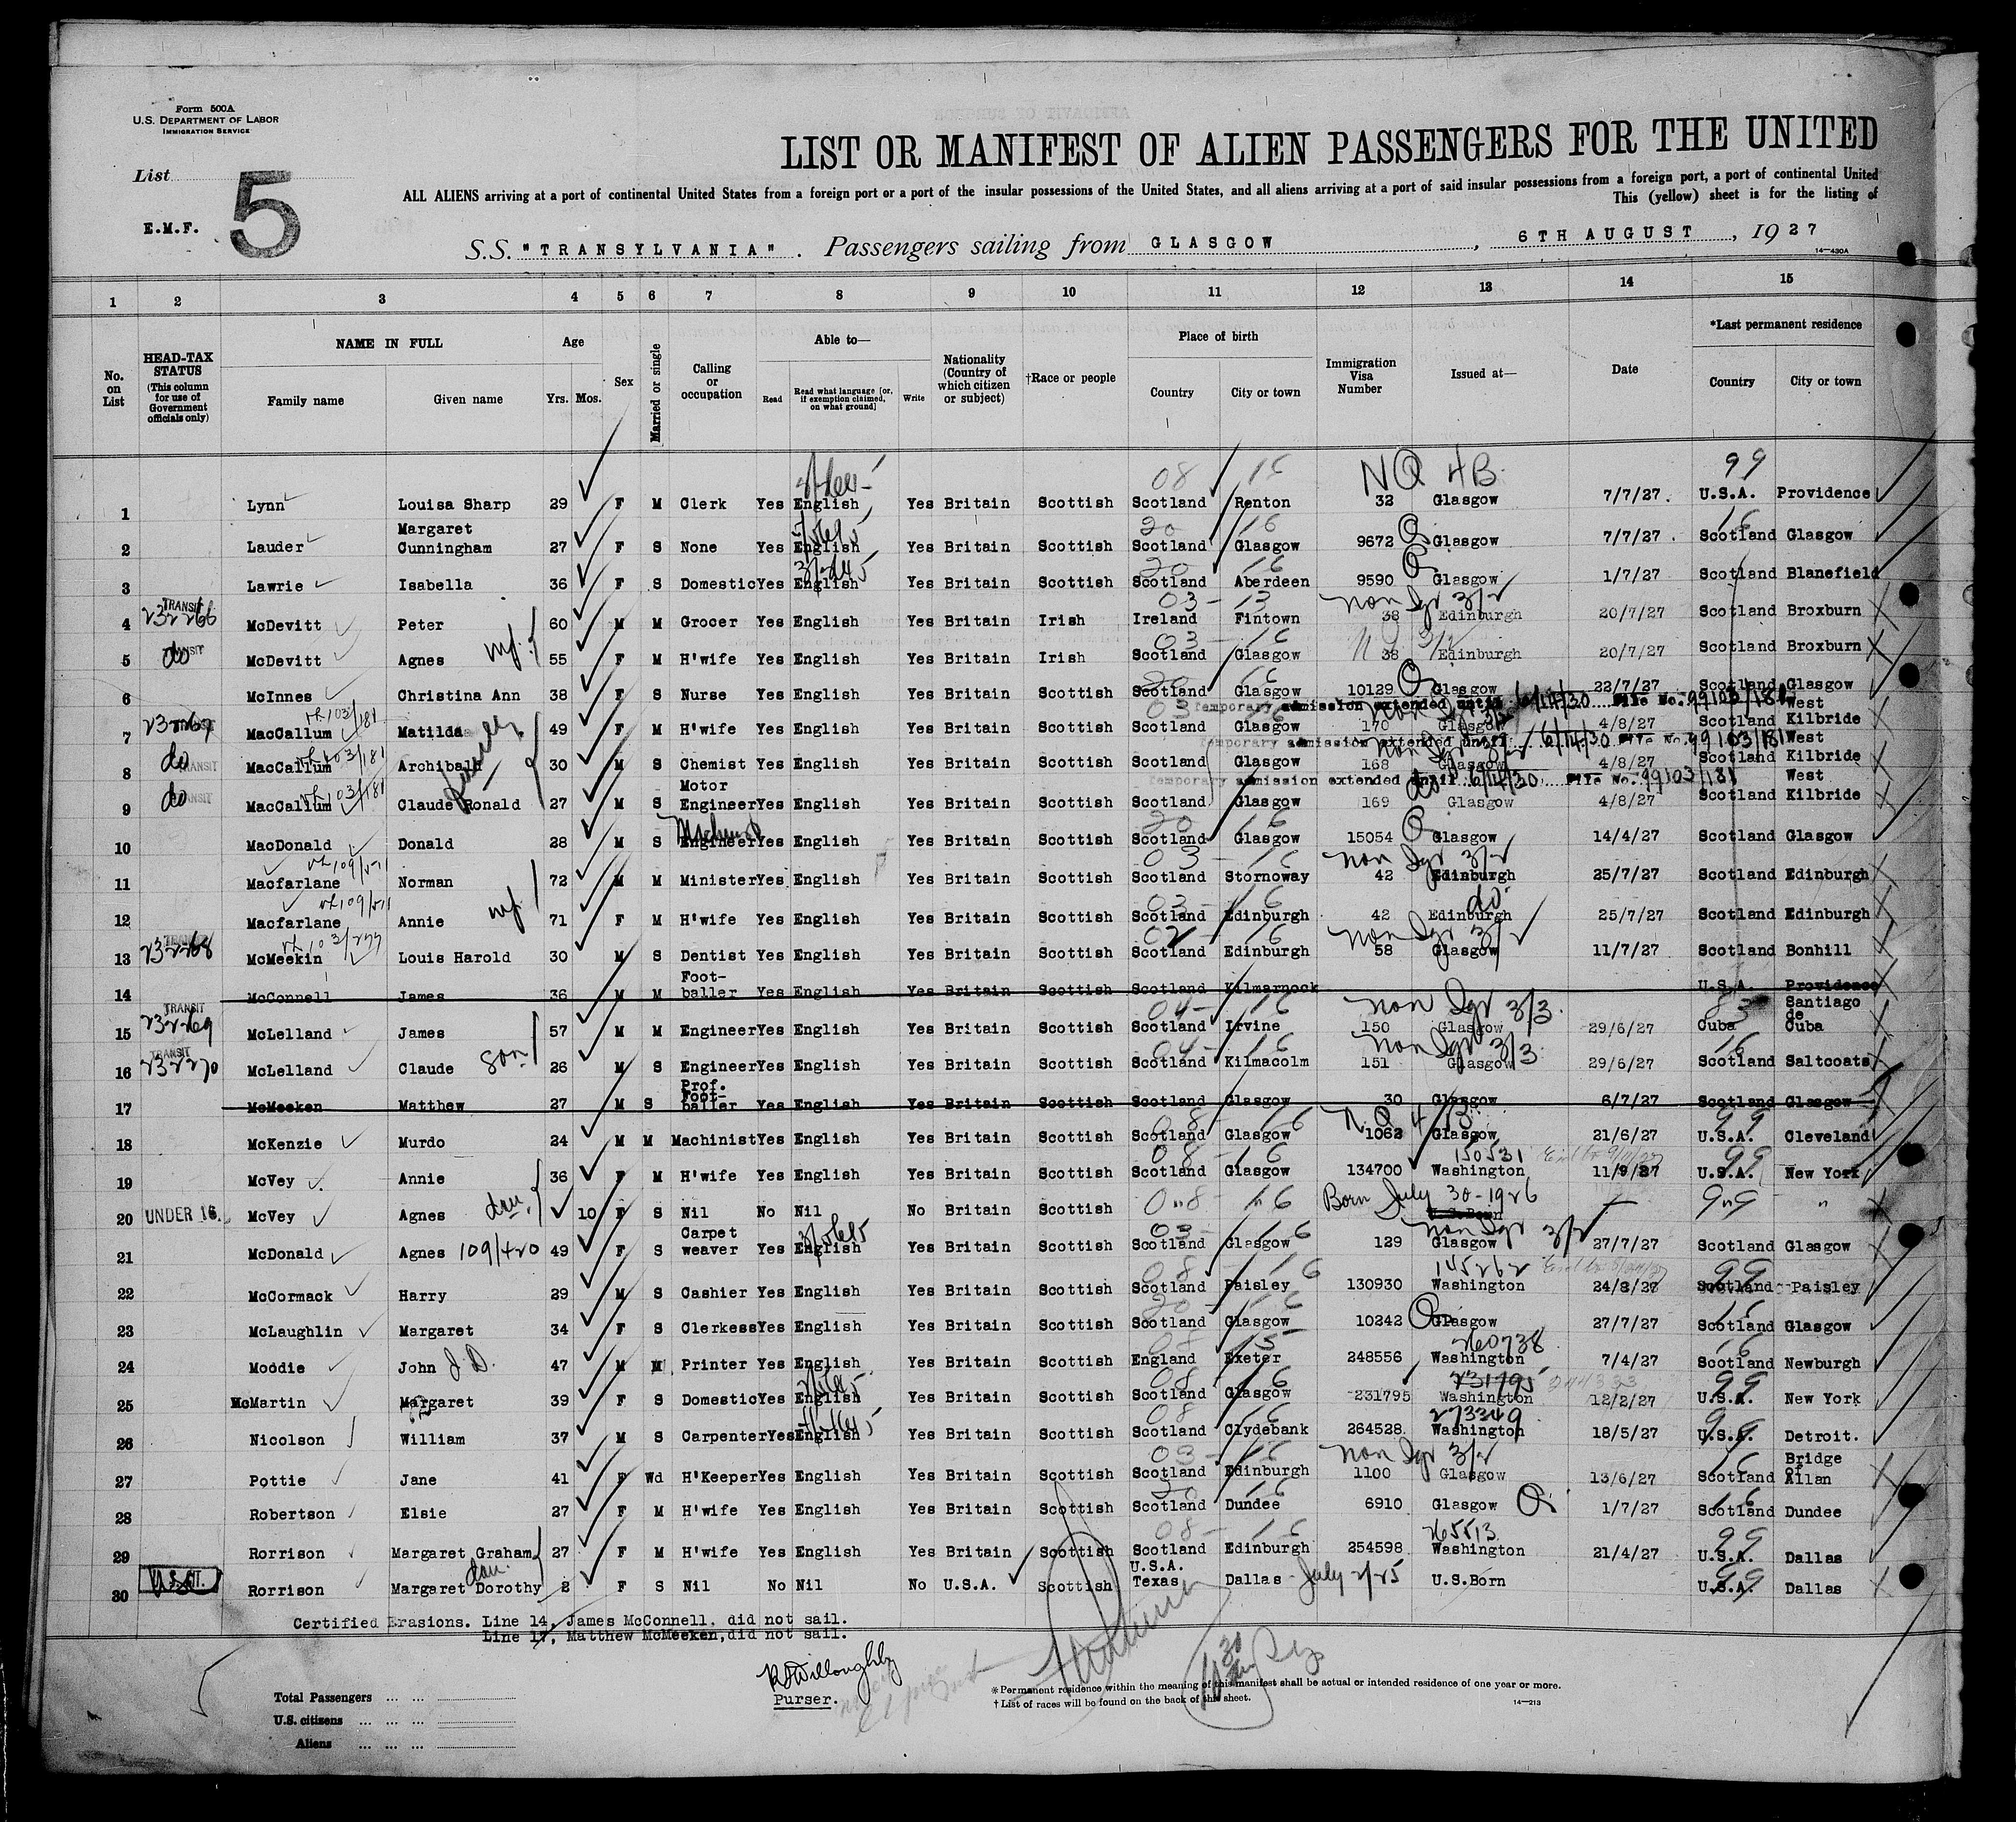 Form 500A
U.S. DEPARTMENT OF LABOR
IMMIGRATION SERVICE
List 5
E.M.F.
LIST OR MANIFEST OF ALIEN PASSENGERS FOR THE UNITED
ALL ALIENS arriving at a port of continental United States from a foreign port or a port of the insular possessions of the United States, and all aliens arriving at a port of said insular possessions from a foreign port, a port of continental United
This (yellow) sheet is for the listing of
S.S. "TRANSYLVANIA". Passengers sailing from GLASGOW, 6TH AUGUST, 1927
14—430A
1 2 3 4 5 6 7 8 9 10 11 12 13 14 15
No. on List
HEAD-TAX STATUS (This column for use of Government officials only)
NAME IN FULL Family name Given name
Age Yrs. Mos.
Sex
Married or single
Calling or occupation
Able to— Read Read what language [or, if exemption claimed, on what ground] Write
Nationality (Country of which citizen or subject)
†Race or people
Place of birth Country City or town
Immigration Visa Number
Issued at—
Date
*Last permanent residence Country City or town
NQ 4B 99
1 Lynn Louisa Sharp 29 F M Clerk Yes English Yes Britain Scottish Scotland Renton 32 Glasgow 7/7/27. U.S.A. Providence
2 Lauder Margaret Cunningham 27 F S None Yes English Yes Britain Scottish Scotland Glasgow 9672 Glasgow 7/7/27. Scotland Glasgow
3 Lawrie Isabella 36 F S Domestic Yes English Yes Britain Scottish Scotland Aberdeen 9590 Glasgow 1/7/27 Scotland Blanefield
4 TRANSIT 232266 McDevitt Peter 60 M M Grocer Yes English Yes Britain Irish Ireland Fintown 38 Edinburgh 20/7/27 Scotland Broxburn
5 TRANSIT do McDevitt Agnes 55 F M H'wife Yes English Yes Britain Irish Scotland Glasgow 38 Edinburgh 20/7/27 Scotland Broxburn
6 McInnes Christina Ann 38 F S Nurse Yes English Yes Britain Scottish Scotland Glasgow 10129 Glasgow 22/7/27 Scotland Glasgow
Temporary admission extended until 6/14/30 File No. 99103/181
7 232267 MacCallum Matilda 49 F M H'wife Yes English Yes Britain Scottish Scotland Glasgow 170 Glasgow 4/8/27 Scotland West Kilbride
Temporary admission extended until 6/14/30 File No. 99103/181
8 do TRANSIT MacCallum Archibald 30 M S Chemist Yes English Yes Britain Scottish Scotland Glasgow 168 Glasgow 4/8/27 Scotland West Kilbride
Temporary admission extended until 6/14/30 File No. 99103/181
9 do TRANSIT MacCallum Claude Ronald 27 M S Motor Engineer Yes English Yes Britain Scottish Scotland Glasgow 169 Glasgow 4/8/27 Scotland West Kilbride
10 MacDonald Donald 28 M S Engineer Yes English Yes Britain Scottish Scotland Glasgow 15054 Glasgow 14/4/27 Scotland Glasgow
11 Macfarlane Norman 72 M M Minister Yes English Yes Britain Scottish Scotland Stornoway 42 Edinburgh 25/7/27 Scotland Edinburgh
12 Macfarlane Annie 71 F M H'wife Yes English Yes Britain Scottish Scotland Edinburgh 42 Edinburgh do 25/7/27 Scotland Edinburgh
13 TRANSIT 232268 McMeekin Louis Harold 30 M S Dentist Yes English Yes Britain Scottish Scotland Edinburgh 58 Glasgow 11/7/27 Scotland Bonhill
14 McConnell James 36 M M Foot-baller Yes English Yes Britain Scottish Scotland Kilmarnock U.S.A. Providence
15 TRANSIT 232269 McLelland James 57 M M Engineer Yes English Yes Britain Scottish Scotland Irvine 150 Glasgow 29/6/27 Cuba Santiago de Cuba
16 TRANSIT 232270 McLelland Claude son 26 M S Engineer Yes English Yes Britain Scottish Scotland Kilmacolm 151 Glasgow 29/6/27 Scotland Saltcoats
17 McMeeken Matthew 27 M S Prof. Foot-baller Yes English Yes Britain Scottish Scotland Glasgow 30 Glasgow 6/7/27 Scotland Glasgow
18 McKenzie Murdo 24 M M Machinist Yes English Yes Britain Scottish Scotland Glasgow 1063 Glasgow 21/6/27 U.S.A. Cleveland
19 McVey Annie 36 F M H'wife Yes English Yes Britain Scottish Scotland Glasgow 134700 150531 Washington 11/9/27 U.S.A. New York
20 UNDER 16. McVey Agnes dau. 10 F S Nil No Nil No Britain Scottish Born July 30-1926
21 McDonald Agnes 109/420 49 F S Carpet weaver Yes English Yes Britain Scottish Scotland Glasgow 129 Glasgow 27/7/27 Scotland Glasgow
22 McCormack Harry 29 M S Cashier Yes English Yes Britain Scottish Scotland Paisley 130930 145262 Washington 24/8/27 Scotland Paisley
23 McLaughlin Margaret 34 F S Clerkess Yes English Yes Britain Scottish Scotland Glasgow 10242 Glasgow 27/7/27 Scotland Glasgow
24 Moddie John J.D. 47 M M Printer Yes English Yes Britain Scottish England Exeter 248556 260738 Washington 7/4/27 Scotland Newburgh
25 McMartin Margaret 39 F S Domestic Yes English Yes Britain Scottish Scotland Glasgow 231795 231795 Washington 12/2/27 U.S.A. New York
26 Nicolson William 37 M S Carpenter Yes English Yes Britain Scottish Scotland Clydebank 264528 273349 Washington 18/5/27 U.S.A. Detroit.
27 Pottie Jane 41 F Wd H'Keeper Yes English Yes Britain Scottish Scotland Edinburgh 1100 Glasgow 13/6/27 Scotland Bridge of Allan
28 Robertson Elsie 27 F M H'wife Yes English Yes Britain Scottish Scotland Dundee 6910 Glasgow 1/7/27 Scotland Dundee
29 Rorrison Margaret Graham 27 F M H'wife Yes English Yes Britain Scottish Scotland Edinburgh 254598 265513 Washington 21/4/27 U.S.A. Dallas
30 U.S. CIT. Rorrison Margaret Dorothy dau. 2 F S Nil No Nil No U.S.A. Scottish U.S.A. Texas Dallas July 2/25 U.S.Born U.S.A. Dallas
Certified Erasions. Line 14, James McConnell. did not sail.
Line 17, Matthew McMeeken, did not sail.
Willoughby
Purser.
Total Passengers ... ...
U.S. citizens ... ... ...
Aliens ... ... ...
*Permanent residence within the meaning of this manifest shall be actual or intended residence of one year or more.
†List of races will be found on the back of this sheet.
14—213